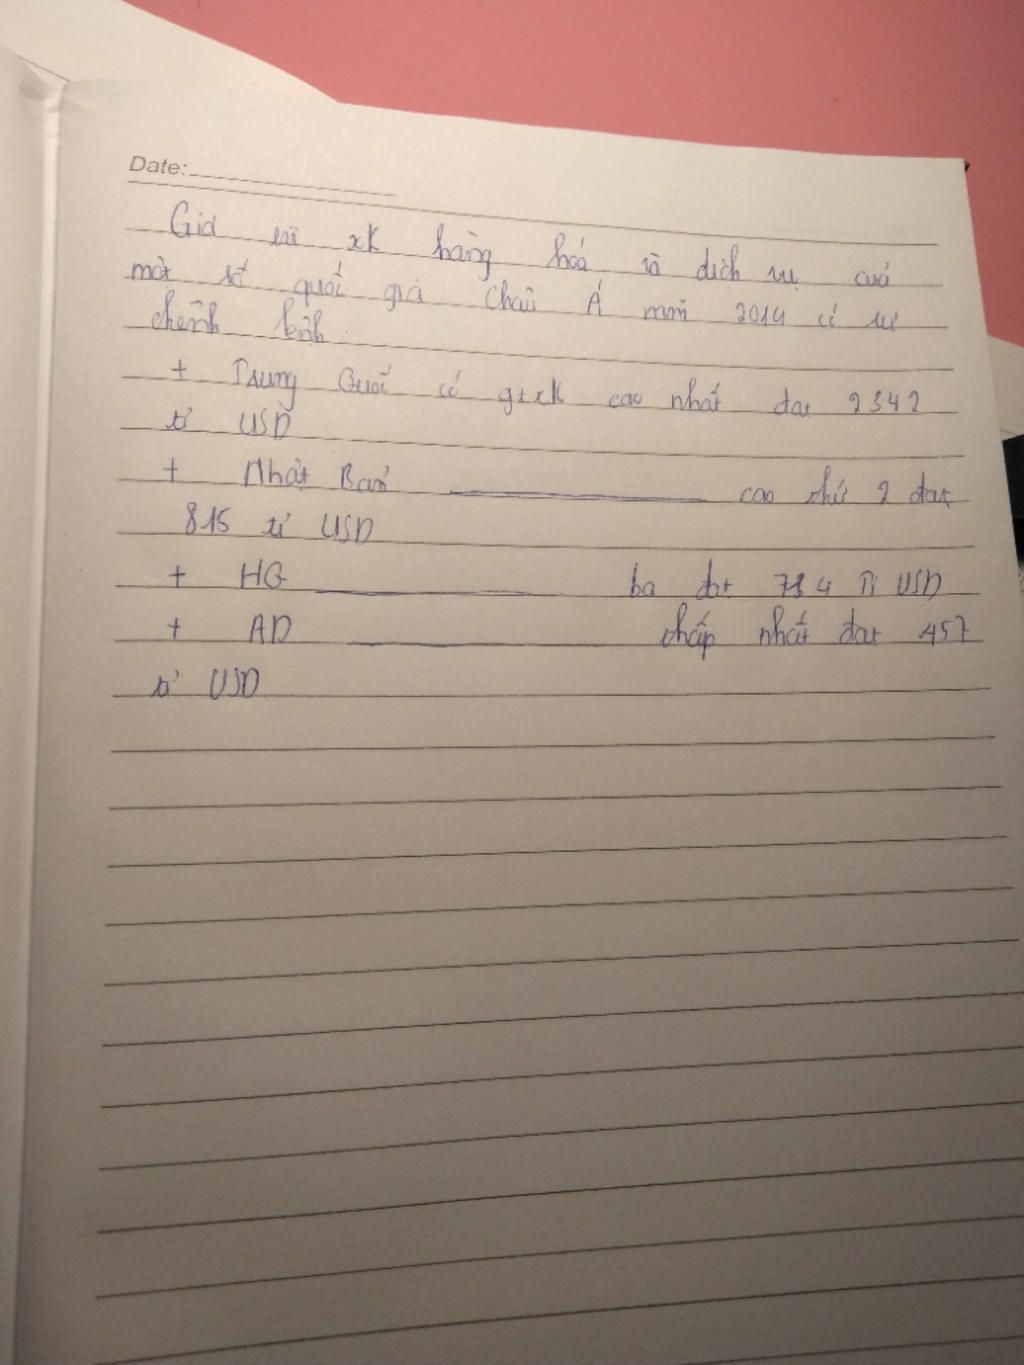 Date:
Giá trị xk hàng hóa và dịch vụ của
một số quốc gia Châu Á năm 2014 có sự
chênh lệch
+ Trung Quốc có gtxk cao nhất đạt 2342
tỉ USD
+ Nhật Bản cao thứ 2 đạt
815 tỉ USD
+ HQ ba đạt 714 Tỉ USD
+ AD thấp nhất đạt 457
tỉ USD